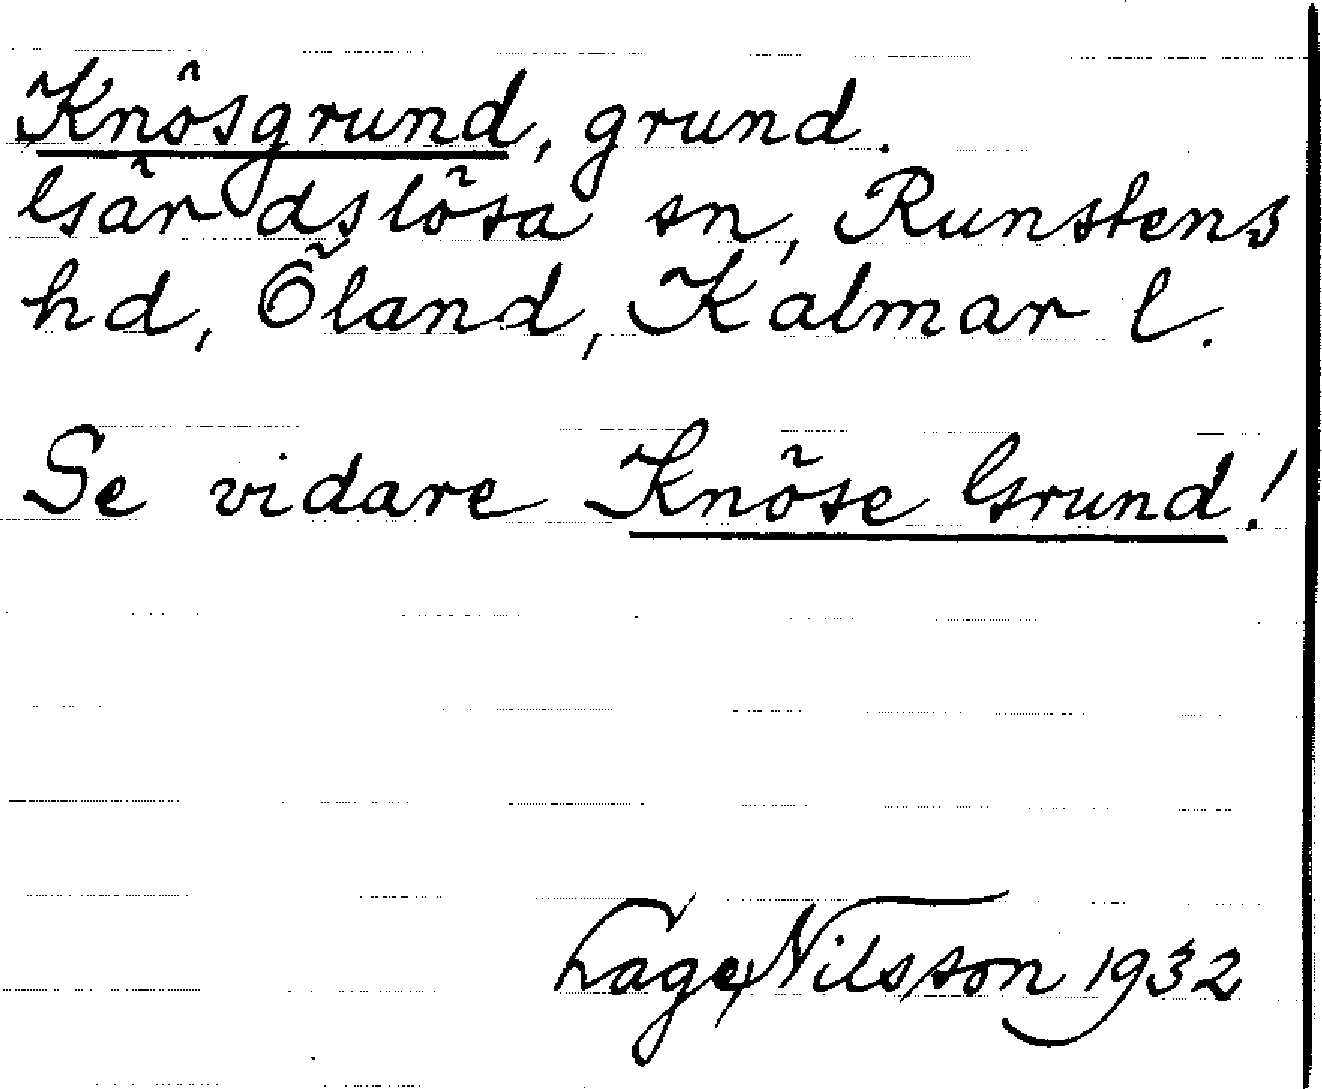 Knösgrund, grund.
Gärdslösa sn, Runstens
hd, Öland, Kalmar l.
Se vidare Knöse Grund!
Lage Nilsson 1932